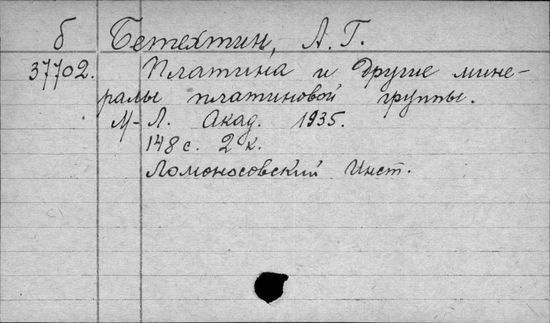 б Бетехтин, А. Г.
37702. Платина и другие мине-
ралы платиновой группы.
М-Л. Акад. 1935.
148 с. 2 к.
Ломоносовский Инст.